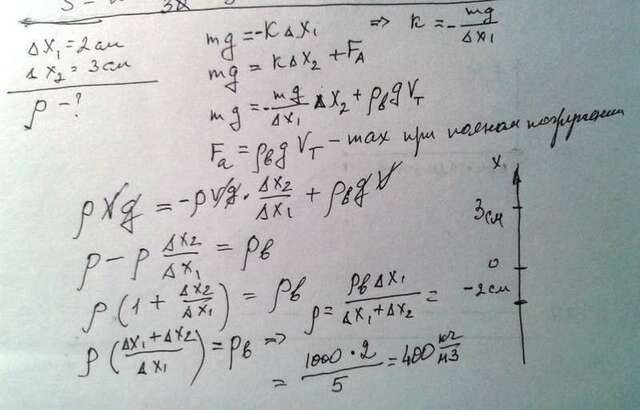 Δx₁ = 2 см
Δx₂ = 3 см
ρ - ?
mg = -kΔx₁ ⇒ k = -mg/Δx₁
mg = kΔx₂ + F_A
mg = -mg/Δx₁ Δx₂ + ρ_в g V_т
F_a = ρ_в g V_т - max при полном погружении
ρVg = -ρVg · Δx₂/Δx₁ + ρ_в g V
ρ - ρ Δx₂/Δx₁ = ρ_в
ρ (1 + Δx₂/Δx₁) = ρ_в
ρ = ρ_в Δx₁/(Δx₁ + Δx₂) =
ρ ((Δx₁ + Δx₂)/Δx₁) = ρ_в ⇒
= 1000 · 2/5 = 400 кг/м3
x
3 см
0
-2 см